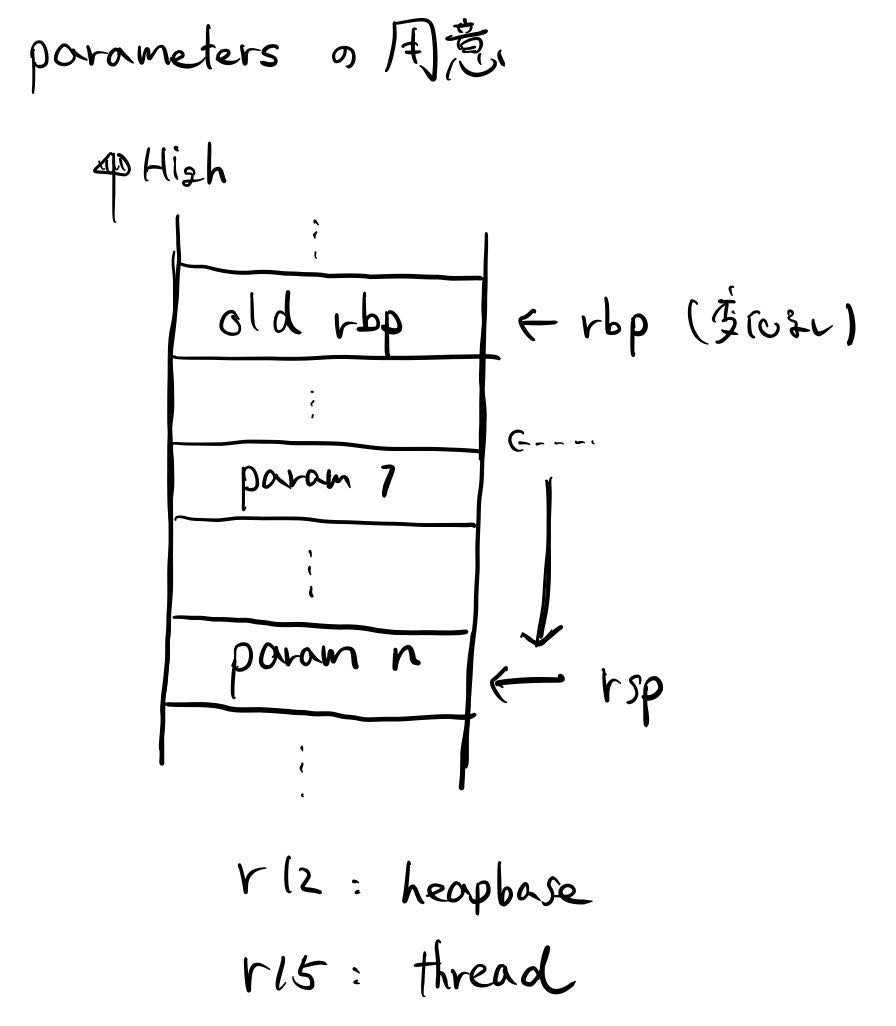 parameters の用意
High
old rbp
← rbp (変化なし)
param 7
param n
← rsp
r12 : heapbase
r15 : thread